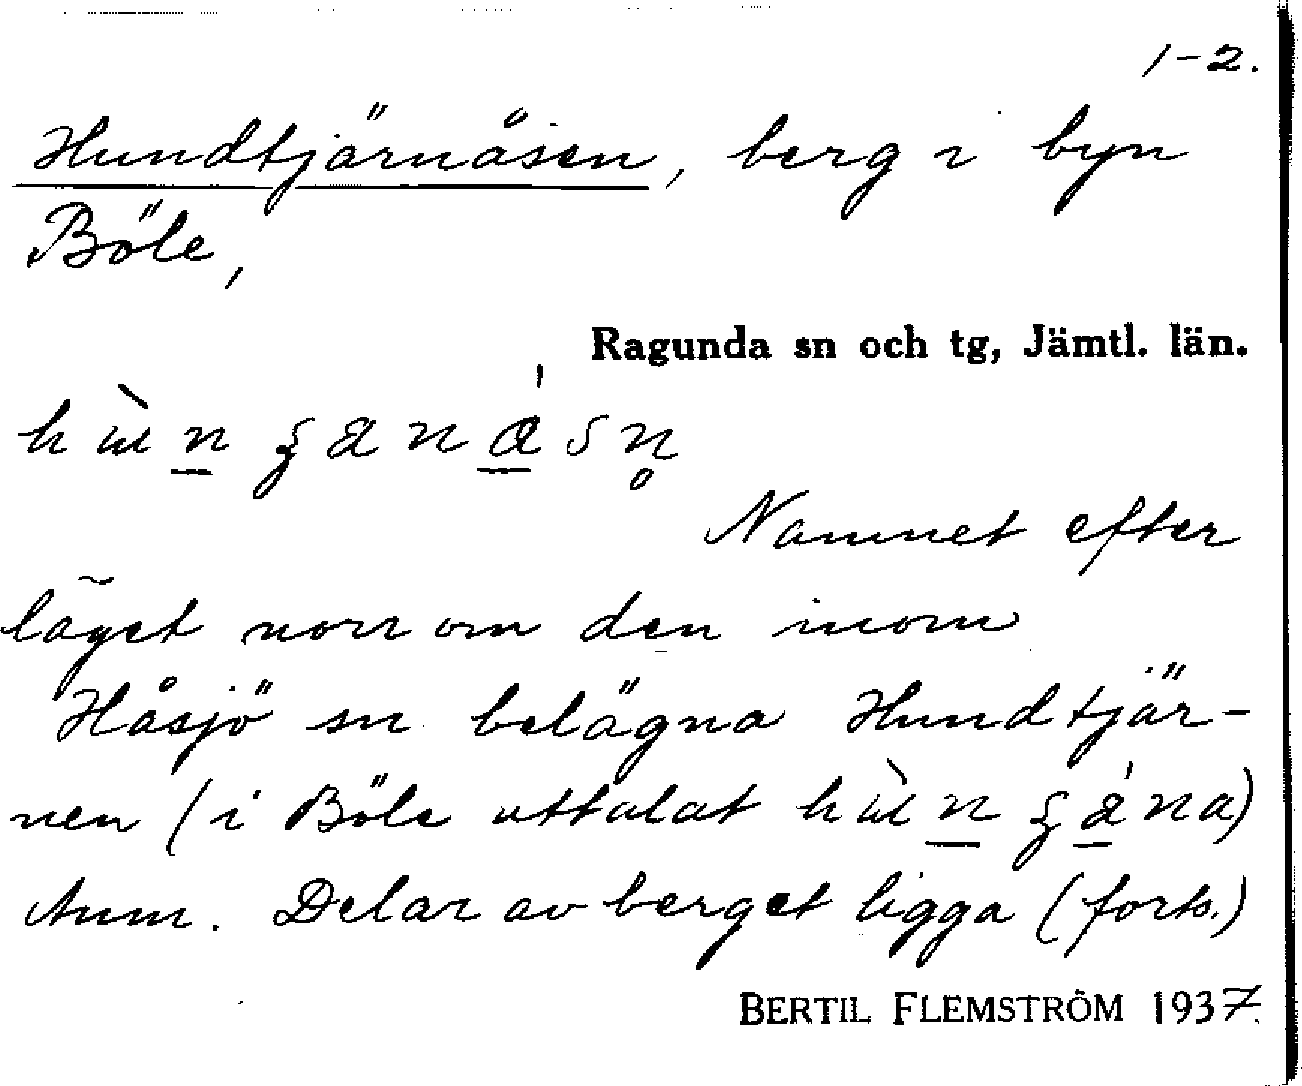 1-2.
Hundtjärnåsen, berg i byn
Böle,
Ragunda sn och tg, Jämtl. län.
Namnet efter
läget norr om den inom
Håsjö sn belägna Hundtjär-
nen (i Böle uttalat
Anm. Delar av berget ligga (forts.)
BERTIL FLEMSTRÖM 1937.